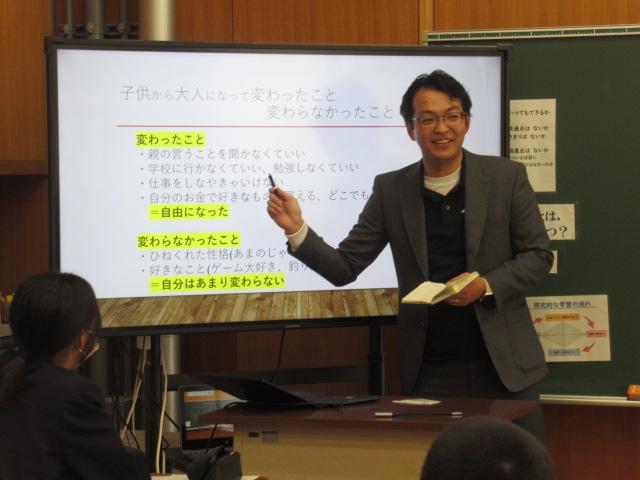 子供から大人になって変わったこと
変わらなかったこと
変わったこと
・親の言うことを聞かなくていい
・学校に行かなくていい、勉強しなくていい
・仕事をしなきゃいけない
・自分のお金で好きなもの 買える、どこでも
＝自由になった
変わらなかったこと
・ひねくれた性格(あまのじゃ
・好きなこと(ゲーム大好き、釣り
＝自分はあまり変わらない
いつでもできるか
共通点は ないか
きまりは ないか
共通点は ないか
とは、
つ？
探究的な学習の流れ